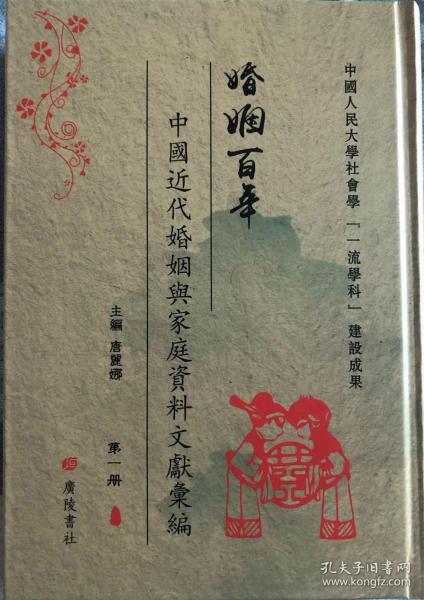 中國人民大學社會學「一流學科」建設成果
婚姻百年
中國近代婚姻與家庭資料文獻彙編
主編 唐麗娜
第一册
廣陵書社
孔夫子旧书网
www.kongfz.com